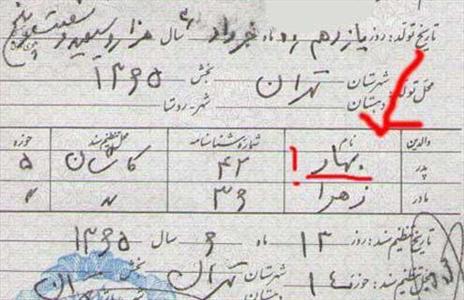 تاریخ تولد: روز یازدهم ماه خرداد سال هزار و سیصد و شصت و پنج
محل تولد: شهرستان تهران بخش ۱۳۶۵
دهستان شهر-روستا
والدین نام شماره شناسنامه محل تنظیم سند حوزه
پدر بهار ۴۲ کاشان ۵
مادر زهرا ۳۶ " "
تاریخ تنظیم سند: روز ۱۳ ماه ۶ سال ۱۳۶۵
تنظیم سند: حوزه ۱۴ شهرستان تهران بخش
دهستان